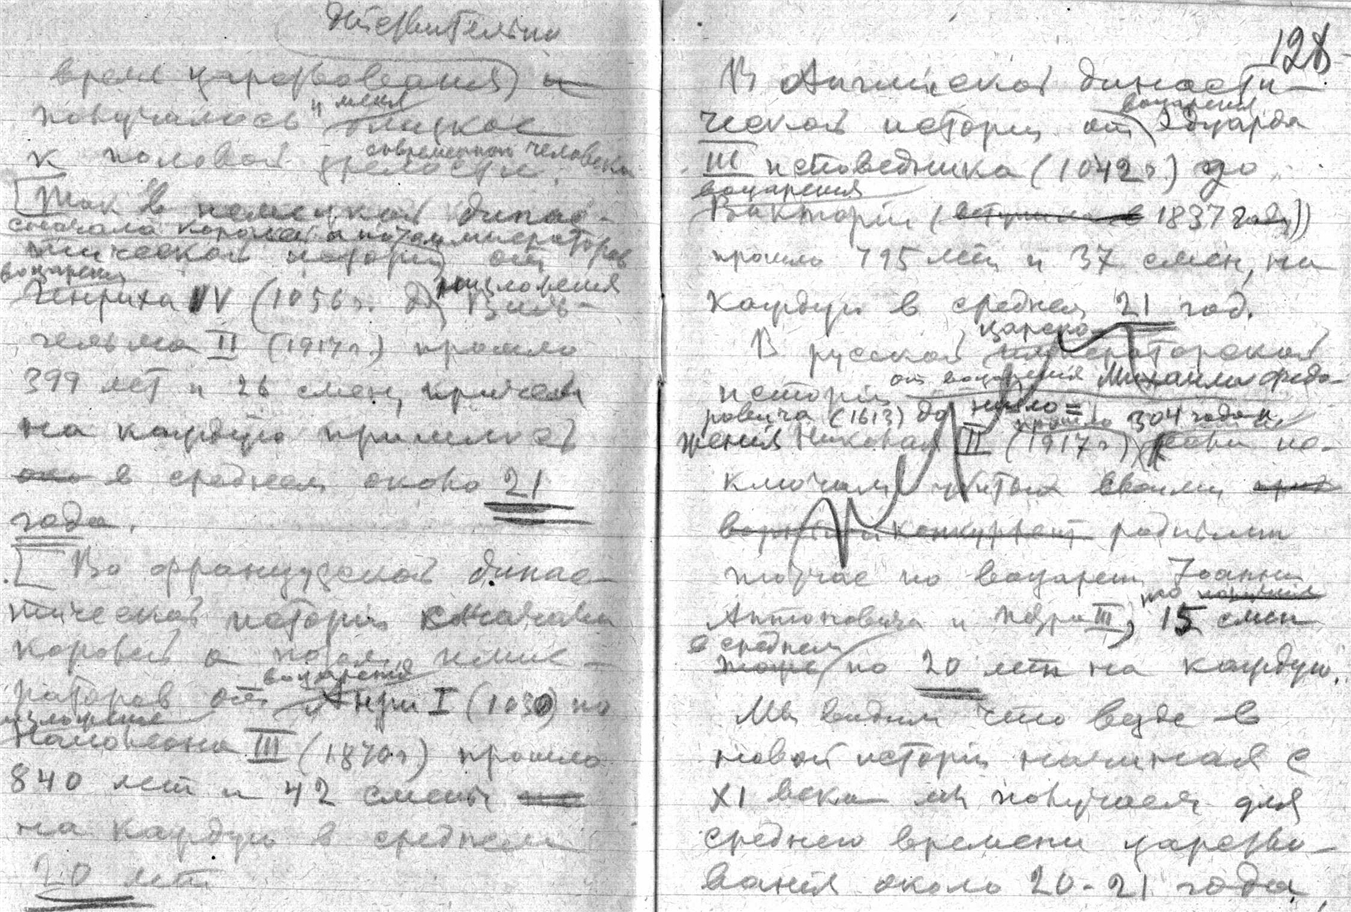 действительно
время царствования) а
получалось и меня близкое
к половой зрелости современного человека.
Так в немецкой динас-
сначала королей а потом императоров
тической истории от
воцарения низложения
Генриха IV (1056 г. до Виль-
гельма II (1917 г.) прошло
399 лет и 26 смен, причем
на каждую пришлось
в среднем около 21
года.
Во французской динас-
тической истории сначала
королей а потом импе-
раторов от воцарения Анри I (1030) по
низложение
Наполеона III (1870 г) прошло
840 лет и 42 смены
на каждую в среднем
20 лет
128
В Английской династи-
ческой истории от воцарения Эдуарда
III исповедника (1042 г.) до
воцарения
Виктории ( 1837 году))
прошло 795 лет и 37 смен, на
каждую в среднем 21 год.
царско
В русской императорской
истории от воцарения Михаила Федо-
ровича (1613) до низло=
прошло 304 года и
жения Николая II (1917 г) если ис-
ключить убитых своими
родными
тотчас по воцарении Иоанна
Антоновича и Петра III, то 15 смен
в среднем
по 20 лет на каждую.
Мы видим что везде в
новой истории начиная с
XI века мы получаем для
среднего времени царство-
вания около 20-21 года.